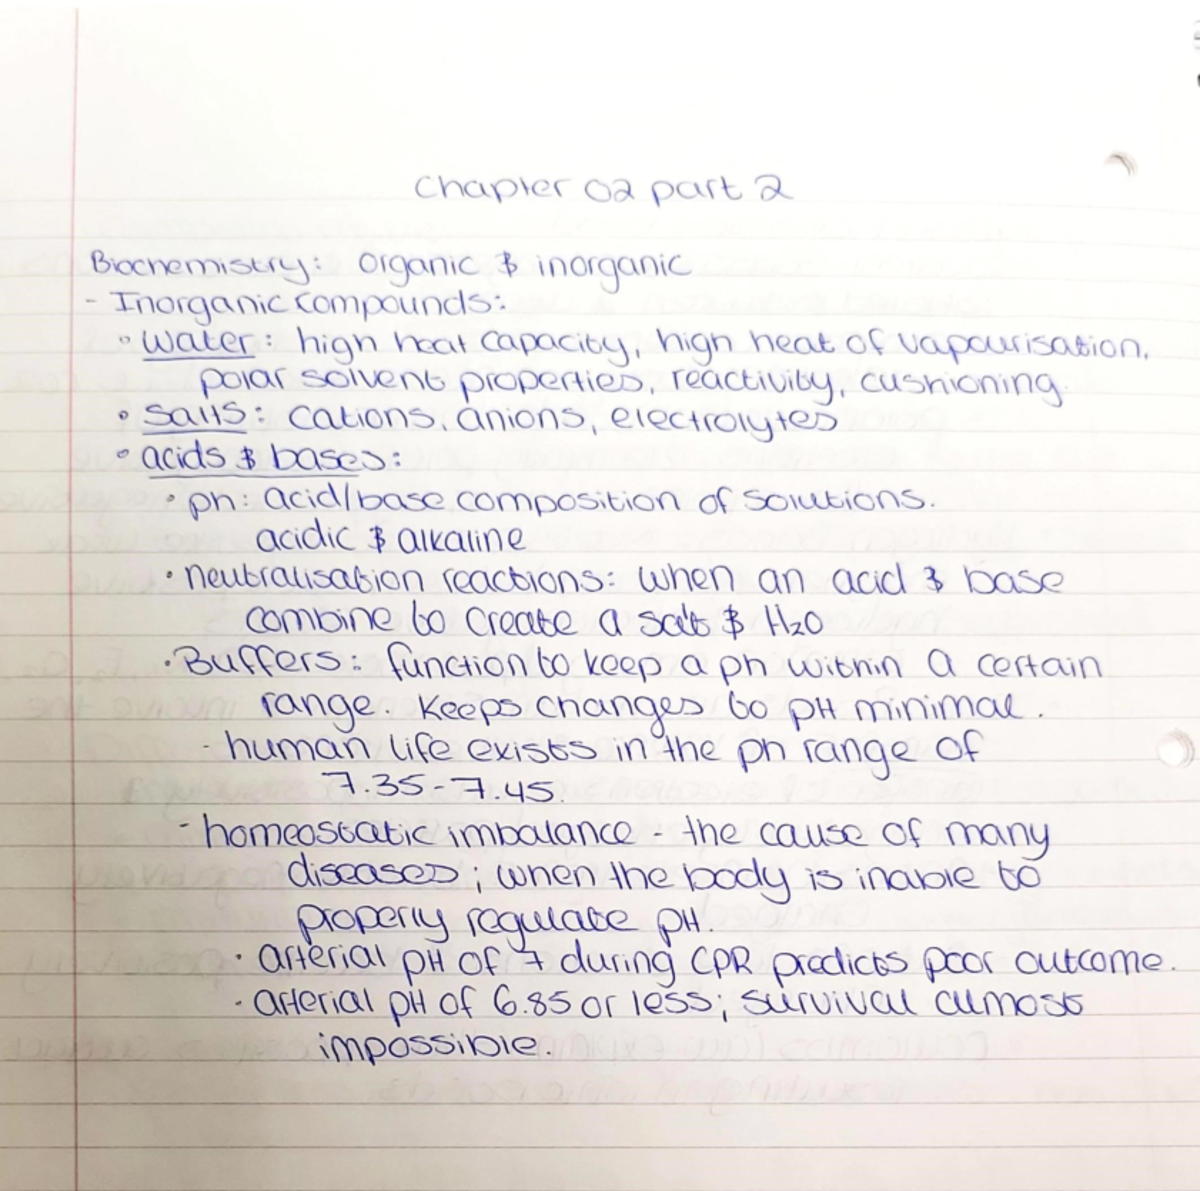 Chapter 02 part 2
Biochemistry: Organic & inorganic
- Inorganic compounds:
◦ Water: high heat capacity, high heat of vapourisation,
polar solvent properties, reactivity, cushioning.
◦ Salts: cations, anions, electrolytes
◦ acids & bases:
• ph: acid/base composition of solutions.
acidic & alkaline
• neutralisation reactions: when an acid & base
combine to create a salt & H₂O
• Buffers: function to keep a ph within a certain
range. Keeps changes to pH minimal.
- human life exists in the ph range of
7.35-7.45.
- homeostatic imbalance - the cause of many
diseases; when the body is inable to
properly regulate pH.
• arterial pH of 7 during CPR predicts poor outcome.
• arterial pH of 6.85 or less; survival almost
impossible.